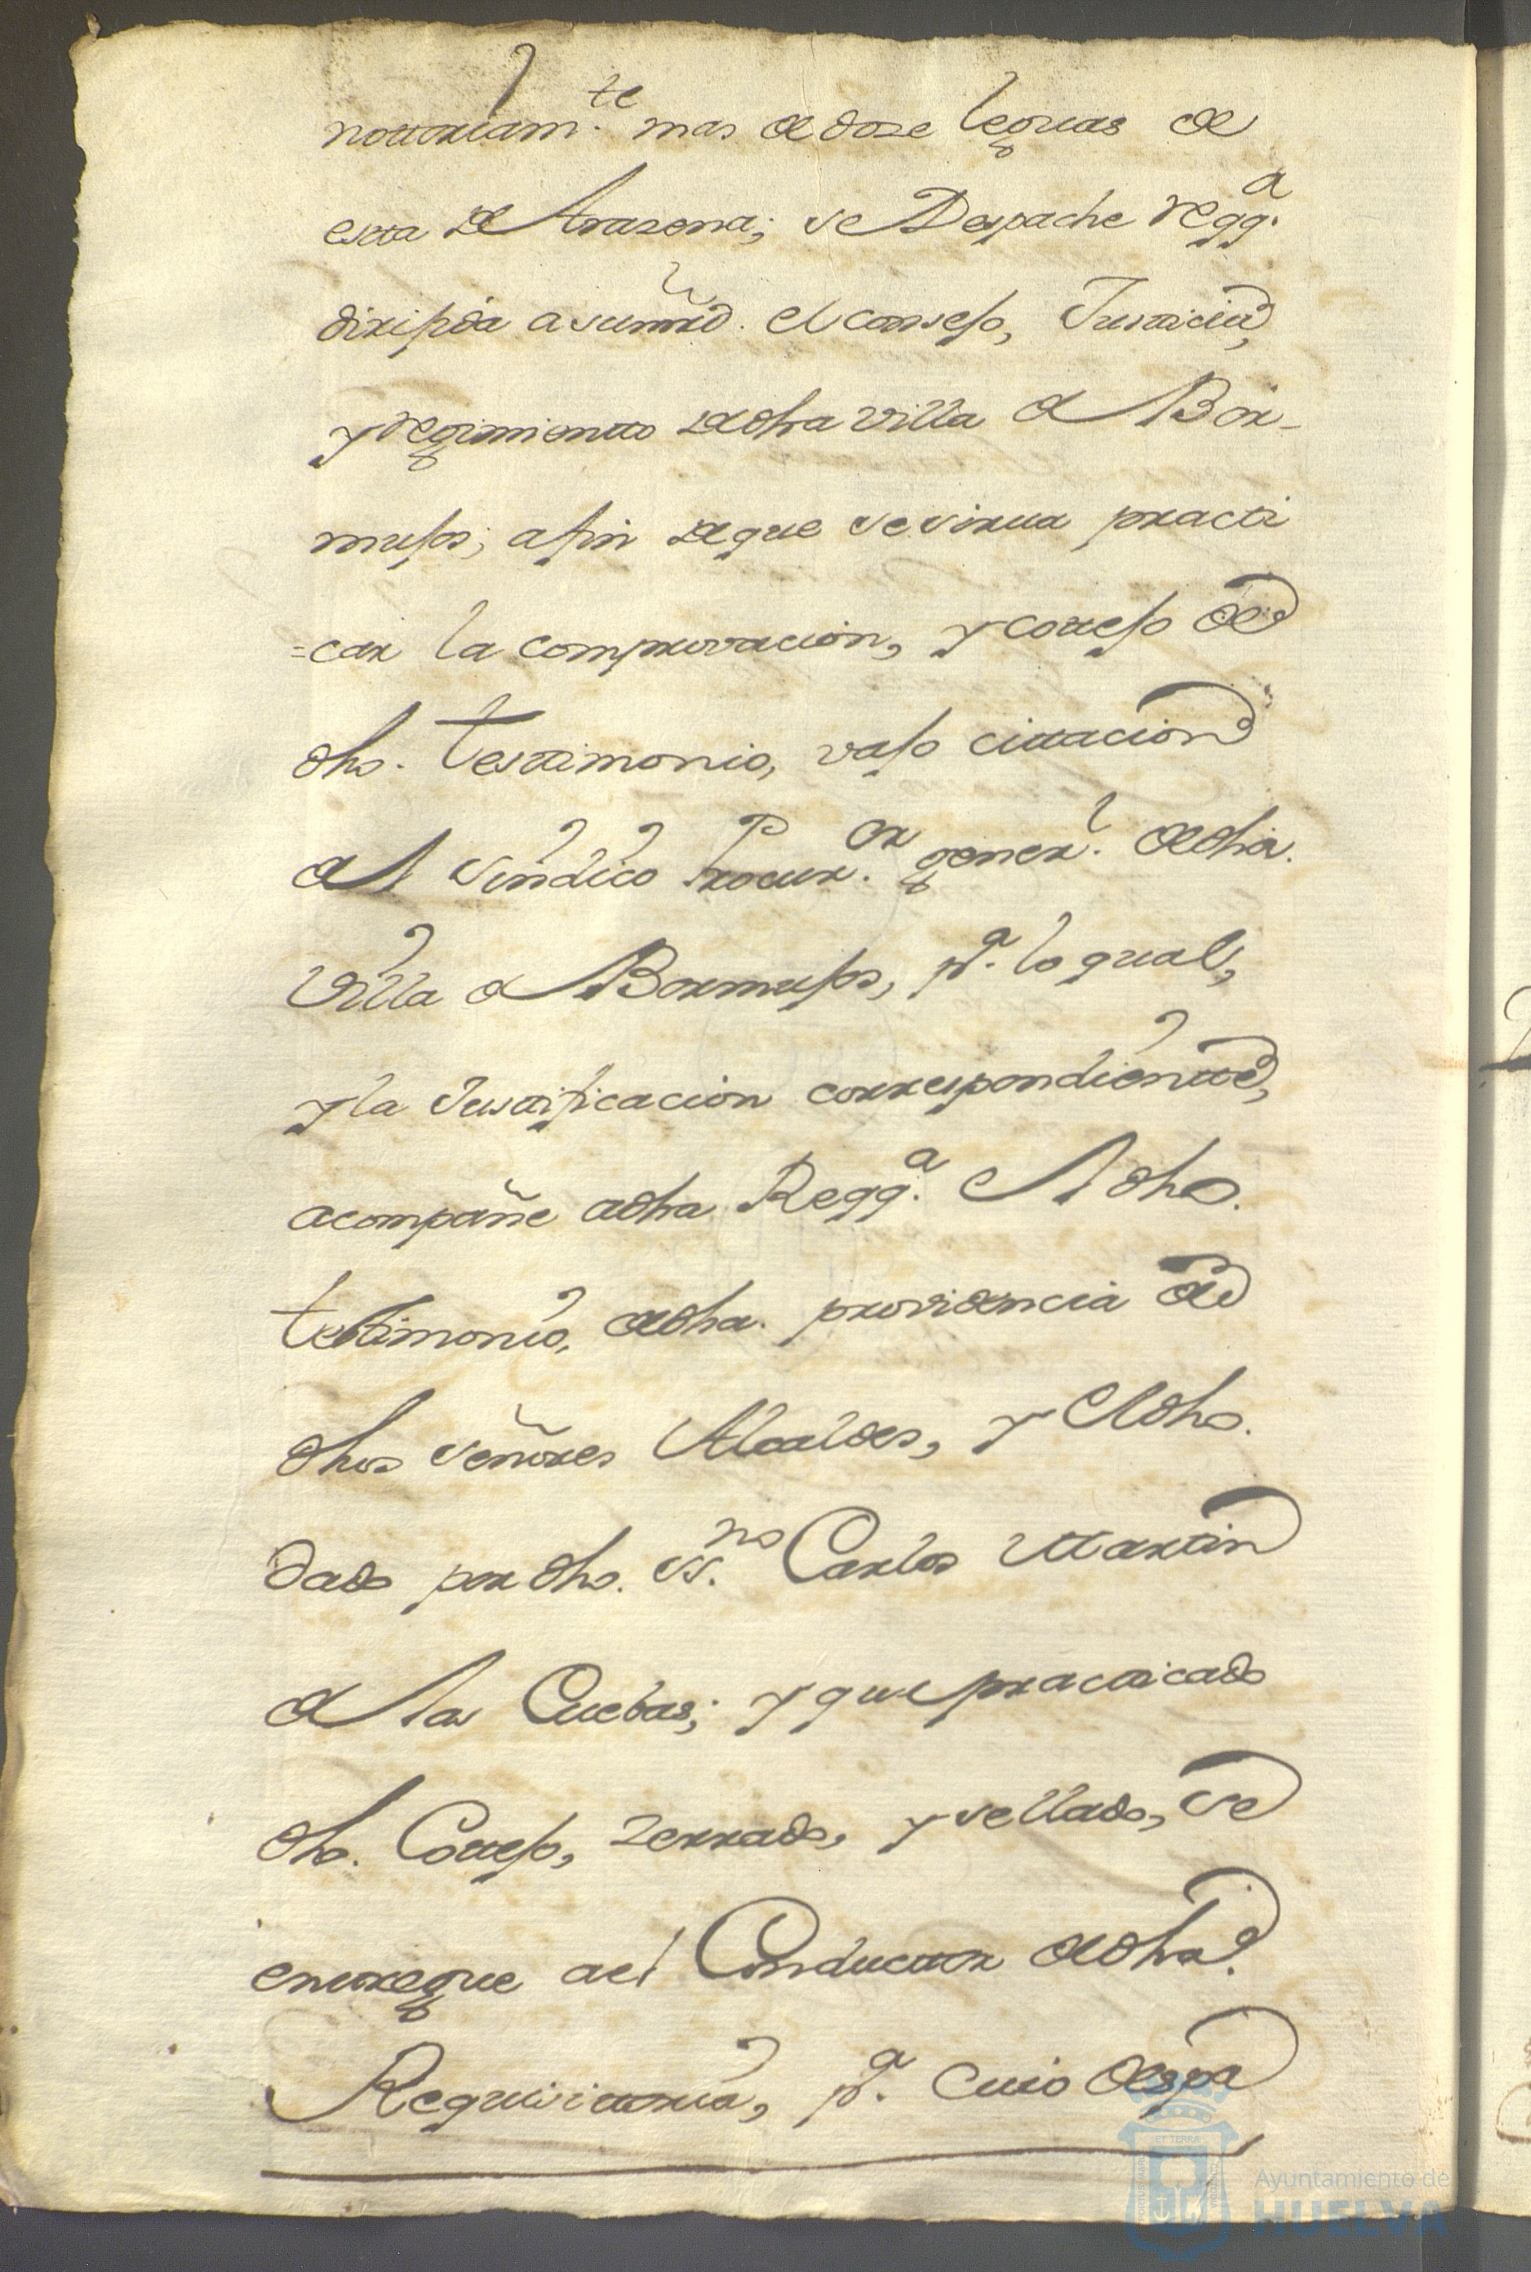 nottoriam.te mas de doze leguas de
esta de Arazena; se Despache regq.a
dirijida a su mrd. el consejo, Justicia,
y regimiento de dha villa de Bor-
mujos; a fin de que se sirva practi
=car la comprovacion, y cotejo de
dho. testimonio, vajo cittacion
del sindico Procur.or gener.l de dha.
Villa de Bormujos, p.a lo qual,
y la Justificacion correspondiente,
acompañe a dha Reqq.a el dho.
testimonio, de dha. providencia de
dhos señores Alcaldes, y el dho.
dado por dho. ss.no Carlos Martin
de las Cuebas; y que practicado
dho. Cotejo, zerrado, y sellado, se
entregue a el Conductor de dha.
Requisitoria, p.a cuio despa
ET TERRA
Ayuntamiento de
HUELVA